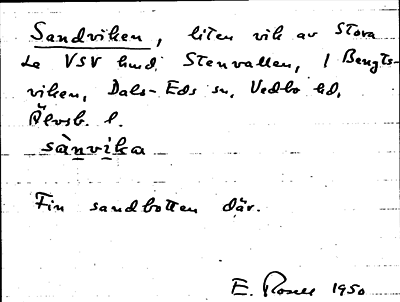 Sandviken, liten vik av Stora
Le VSV hmd. Stenvallen, / Bengts-
viken, Dals-Eds sn, Vedbo hd,
Älvsb. l.
sànvika
Fin sandbotten där.
E. Rosell 1950